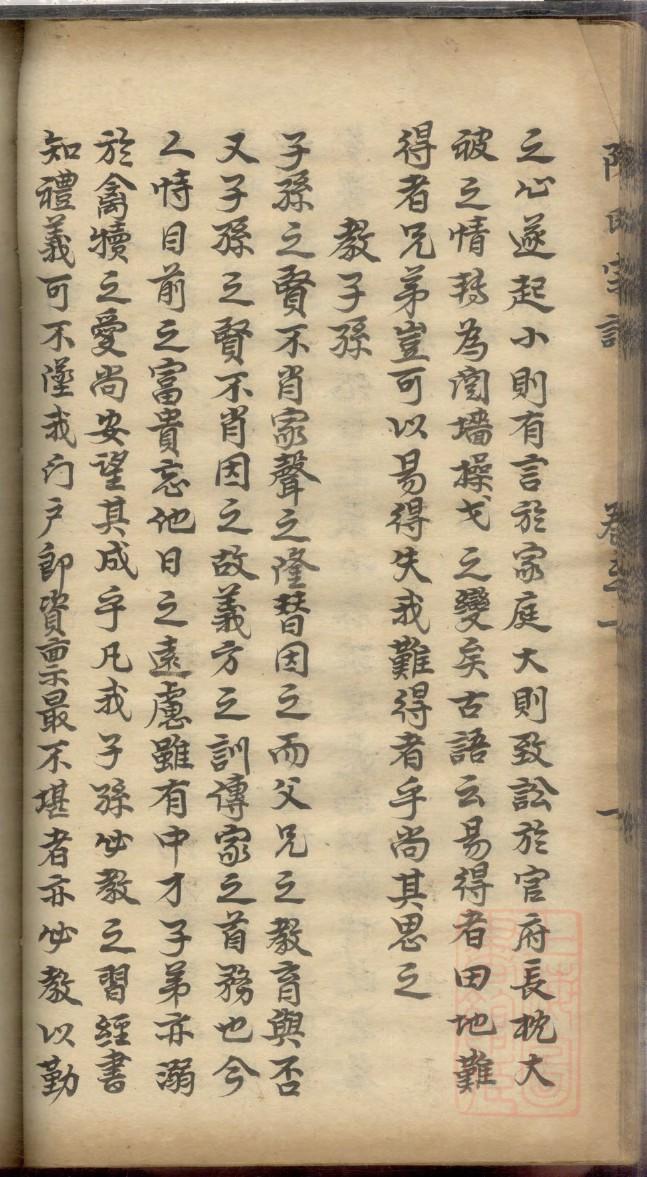 陳氏家訓 卷之一 一
之心遂起小則有言於家庭大則致訟於官府長枕大
被之情轉為鬩墻操戈之變矣古語云易得者田地難
得者兄弟豈可以易得失我難得者乎尚其思之
教子孫
子孫之賢不肖家聲之隆替因之而父兄之教育與否
又子孫之賢不肖因之故義方之訓傳家之首務也今
人恃目前之富貴忘他日之遠慮雖有中才子弟亦溺
於禽犢之愛尚安望其成乎凡我子孫必教之習經書
知禮義可不墜我门户即資禀最不堪者亦必教以勤